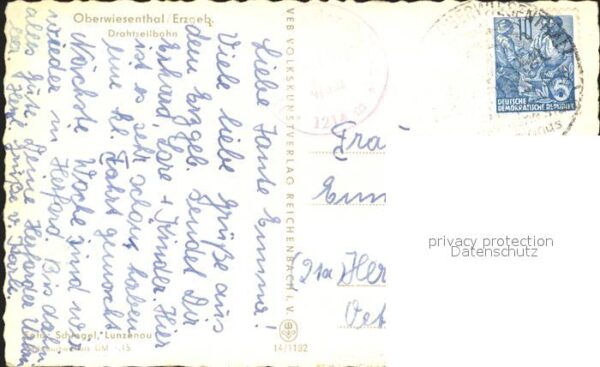 Oberwiesenthal / Erzgeb.
Drahtseilbahn
Liebe Tante Emma!
Viele liebe Grüße aus
dem Erzgeb. sendet Dir
Erhard, Lore + Kinder. Hier
ist es sehr schön, haben
eine Fahrt gemacht.
Nächste Woche sind wir
wieder in Herford. Bis dahin
alles gute Deine Herforder
Herzl. Grüße v.
Schlegel, Lunzenau
VEB VOLKSKUNSTVERLAG REICHENBACH I. V.
14/1192
10
6
DEUTSCHE
DEMOKRATISCHE REPUBLIK
Emm
(21a Her
privacy protection
Datenschutz